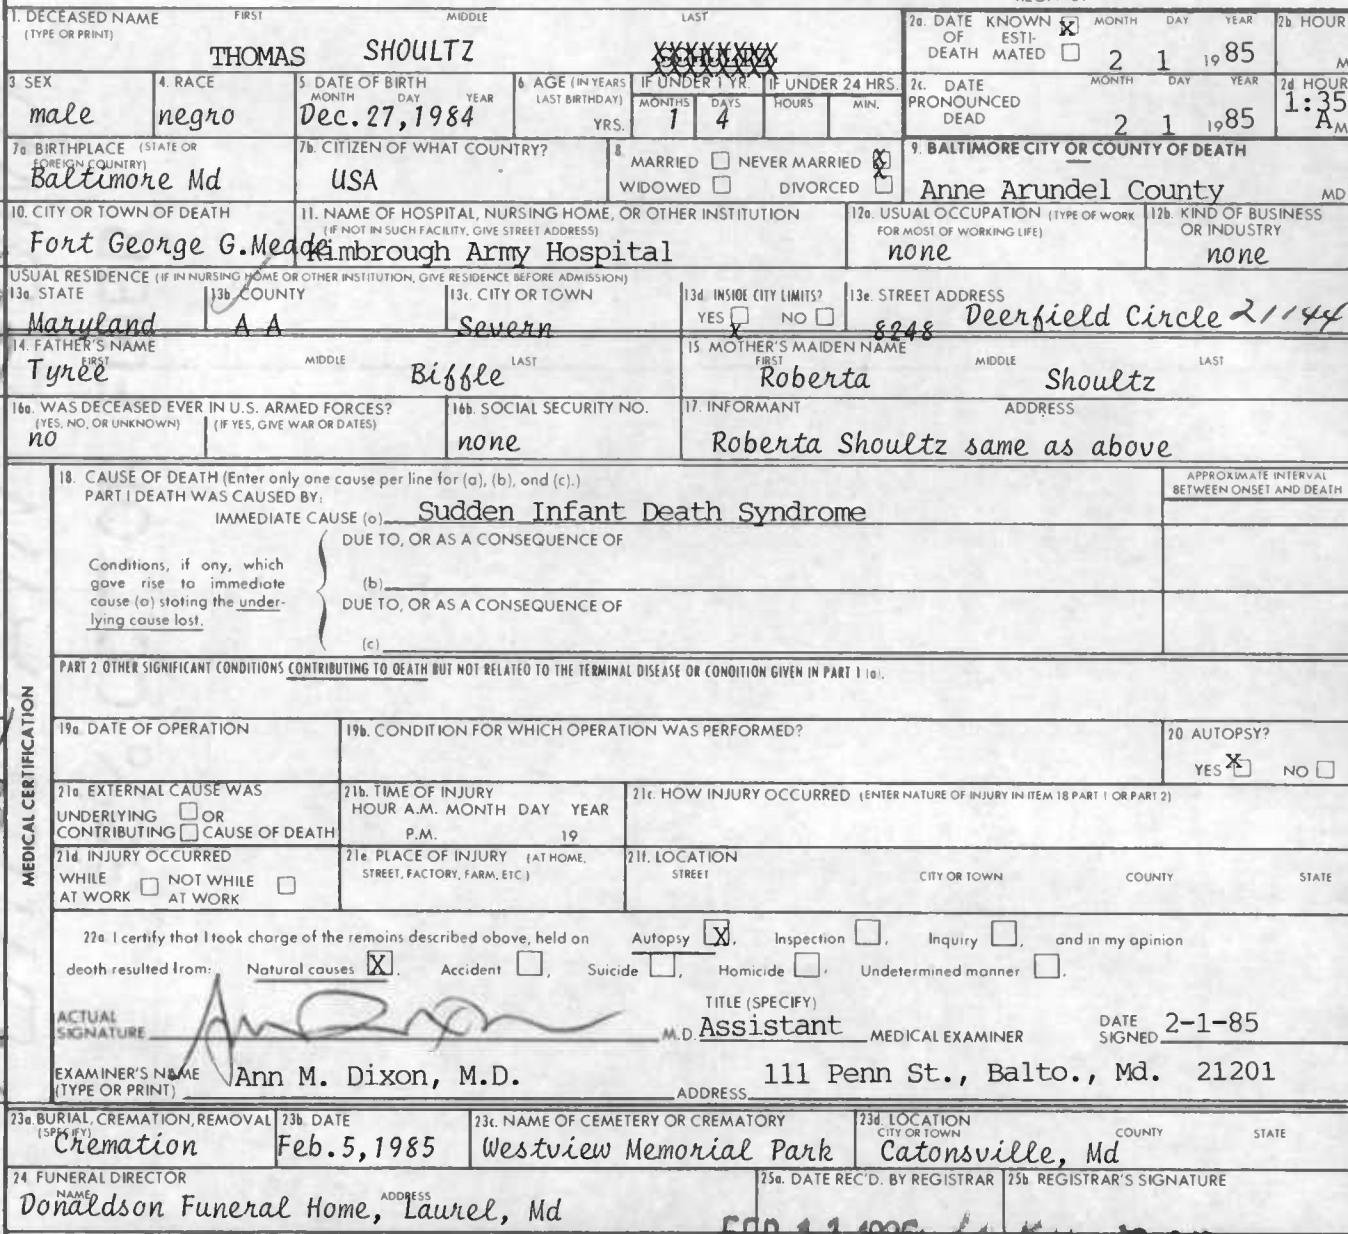 1. DECEASED NAME FIRST MIDDLE LAST
(TYPE OR PRINT)
THOMAS SHOULTZ
2a. DATE KNOWN X MONTH DAY YEAR
OF ESTI-
DEATH MATED 2 1 1985
2b. HOUR
M
3 SEX
male
4. RACE
negro
5 DATE OF BIRTH
MONTH DAY YEAR
Dec. 27, 1984
6 AGE (IN YEARS
LAST BIRTHDAY)
YRS.
IF UNDER 1 YR.
MONTHS DAYS
1 4
IF UNDER 24 HRS.
HOURS MIN.
2c. DATE MONTH DAY YEAR
PRONOUNCED
DEAD 2 1 1985
2d HOUR
1:35
A M
7a BIRTHPLACE (STATE OR
FOREIGN COUNTRY)
Baltimore Md
7b. CITIZEN OF WHAT COUNTRY?
USA
8
MARRIED NEVER MARRIED X
WIDOWED DIVORCED
9. BALTIMORE CITY OR COUNTY OF DEATH
Anne Arundel County MD
10. CITY OR TOWN OF DEATH
Fort George G. Meade
11. NAME OF HOSPITAL, NURSING HOME, OR OTHER INSTITUTION
(IF NOT IN SUCH FACILITY, GIVE STREET ADDRESS)
Kimbrough Army Hospital
12a. USUAL OCCUPATION (TYPE OF WORK
FOR MOST OF WORKING LIFE)
none
12b. KIND OF BUSINESS
OR INDUSTRY
none
USUAL RESIDENCE (IF IN NURSING HOME OR OTHER INSTITUTION, GIVE RESIDENCE BEFORE ADMISSION)
13a. STATE
Maryland
13b. COUNTY
A A
13c. CITY OR TOWN
Severn
13d INSIDE CITY LIMITS?
YES NO
X
13e. STREET ADDRESS
8248 Deerfield Circle 21144
14. FATHER'S NAME
FIRST MIDDLE LAST
Tyree Biffle
15. MOTHER'S MAIDEN NAME
FIRST MIDDLE LAST
Roberta Shoultz
16a. WAS DECEASED EVER IN U.S. ARMED FORCES?
(YES, NO, OR UNKNOWN) (IF YES, GIVE WAR OR DATES)
no
16b. SOCIAL SECURITY NO.
none
17. INFORMANT ADDRESS
Roberta Shoultz same as above
MEDICAL CERTIFICATION
18. CAUSE OF DEATH (Enter only one cause per line for (a), (b), and (c).)
PART I DEATH WAS CAUSED BY:
IMMEDIATE CAUSE (a) Sudden Infant Death Syndrome
APPROXIMATE INTERVAL
BETWEEN ONSET AND DEATH
DUE TO, OR AS A CONSEQUENCE OF
Conditions, if any, which
gave rise to immediate
cause (a) stating the under-
lying cause last.
(b)
DUE TO, OR AS A CONSEQUENCE OF
(c)
PART 2 OTHER SIGNIFICANT CONDITIONS CONTRIBUTING TO DEATH BUT NOT RELATED TO THE TERMINAL DISEASE OR CONDITION GIVEN IN PART 1 (a).
19a DATE OF OPERATION
19b. CONDITION FOR WHICH OPERATION WAS PERFORMED?
20. AUTOPSY?
YES X NO
21a EXTERNAL CAUSE WAS
UNDERLYING OR
CONTRIBUTING CAUSE OF DEATH
21b. TIME OF INJURY
HOUR A.M. MONTH DAY YEAR
P.M. 19
21c. HOW INJURY OCCURRED (ENTER NATURE OF INJURY IN ITEM 18 PART 1 OR PART 2)
21d INJURY OCCURRED
WHILE NOT WHILE
AT WORK AT WORK
21e PLACE OF INJURY (AT HOME,
STREET, FACTORY, FARM, ETC)
21f. LOCATION
STREET CITY OR TOWN COUNTY STATE
22a I certify that I took charge of the remains described above, held on Autopsy X, Inspection, Inquiry, and in my opinion
death resulted from: Natural causes X, Accident, Suicide, Homicide, Undetermined manner.
ACTUAL
SIGNATURE M.D.
TITLE (SPECIFY)
Assistant MEDICAL EXAMINER
DATE
SIGNED 2-1-85
EXAMINER'S NAME
(TYPE OR PRINT) Ann M. Dixon, M.D.
ADDRESS 111 Penn St., Balto., Md. 21201
23a. BURIAL, CREMATION, REMOVAL
(SPECIFY)
Cremation
23b. DATE
Feb. 5, 1985
23c. NAME OF CEMETERY OR CREMATORY
Westview Memorial Park
23d. LOCATION
CITY OR TOWN COUNTY STATE
Catonsville, Md
24 FUNERAL DIRECTOR
NAME ADDRESS
Donaldson Funeral Home, Laurel, Md
25a. DATE REC'D. BY REGISTRAR
25b. REGISTRAR'S SIGNATURE